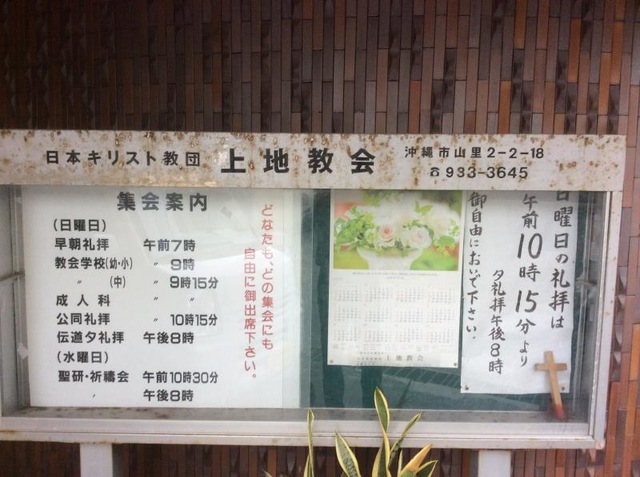 日本キリスト教団 上地教会 沖縄市山里2-2-18
☎933-3645
集会案内
(日曜日)
早朝礼拝 午前7時
教会学校(幼・小) 〃 9時
〃 (中) 〃 9時15分
成人科 〃 〃
公同礼拝 〃 10時15分
伝道夕礼拝 午後8時
(水曜日)
聖研・祈禱会 午前10時30分
〃 午後8時
どなたも、どの集会にも
自由に御出席下さい。
上地教会
日曜日の礼拝は
午前10時15分より
夕礼拝午後8時
御自由においで下さい。